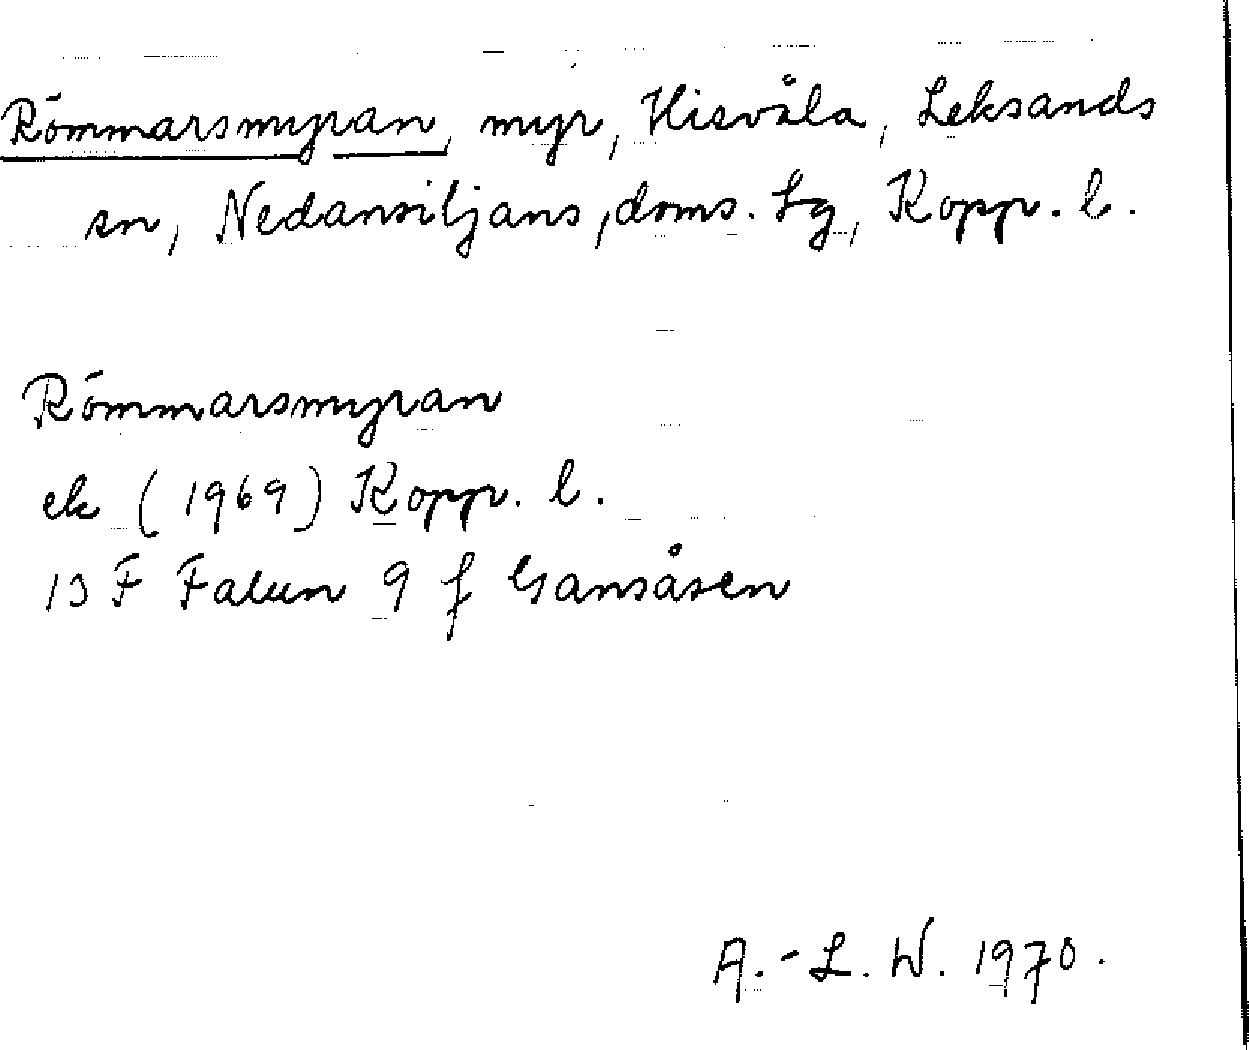 Römmarsmyran, myr, Hisvåla, Leksands
sn, Nedansiljans, doms. Lg, Kopp. l.
Römmarsmyran
ek (1969) Kopp. l.
13 F Falun 9 f Gansåsen
A.-L. W. 1970.